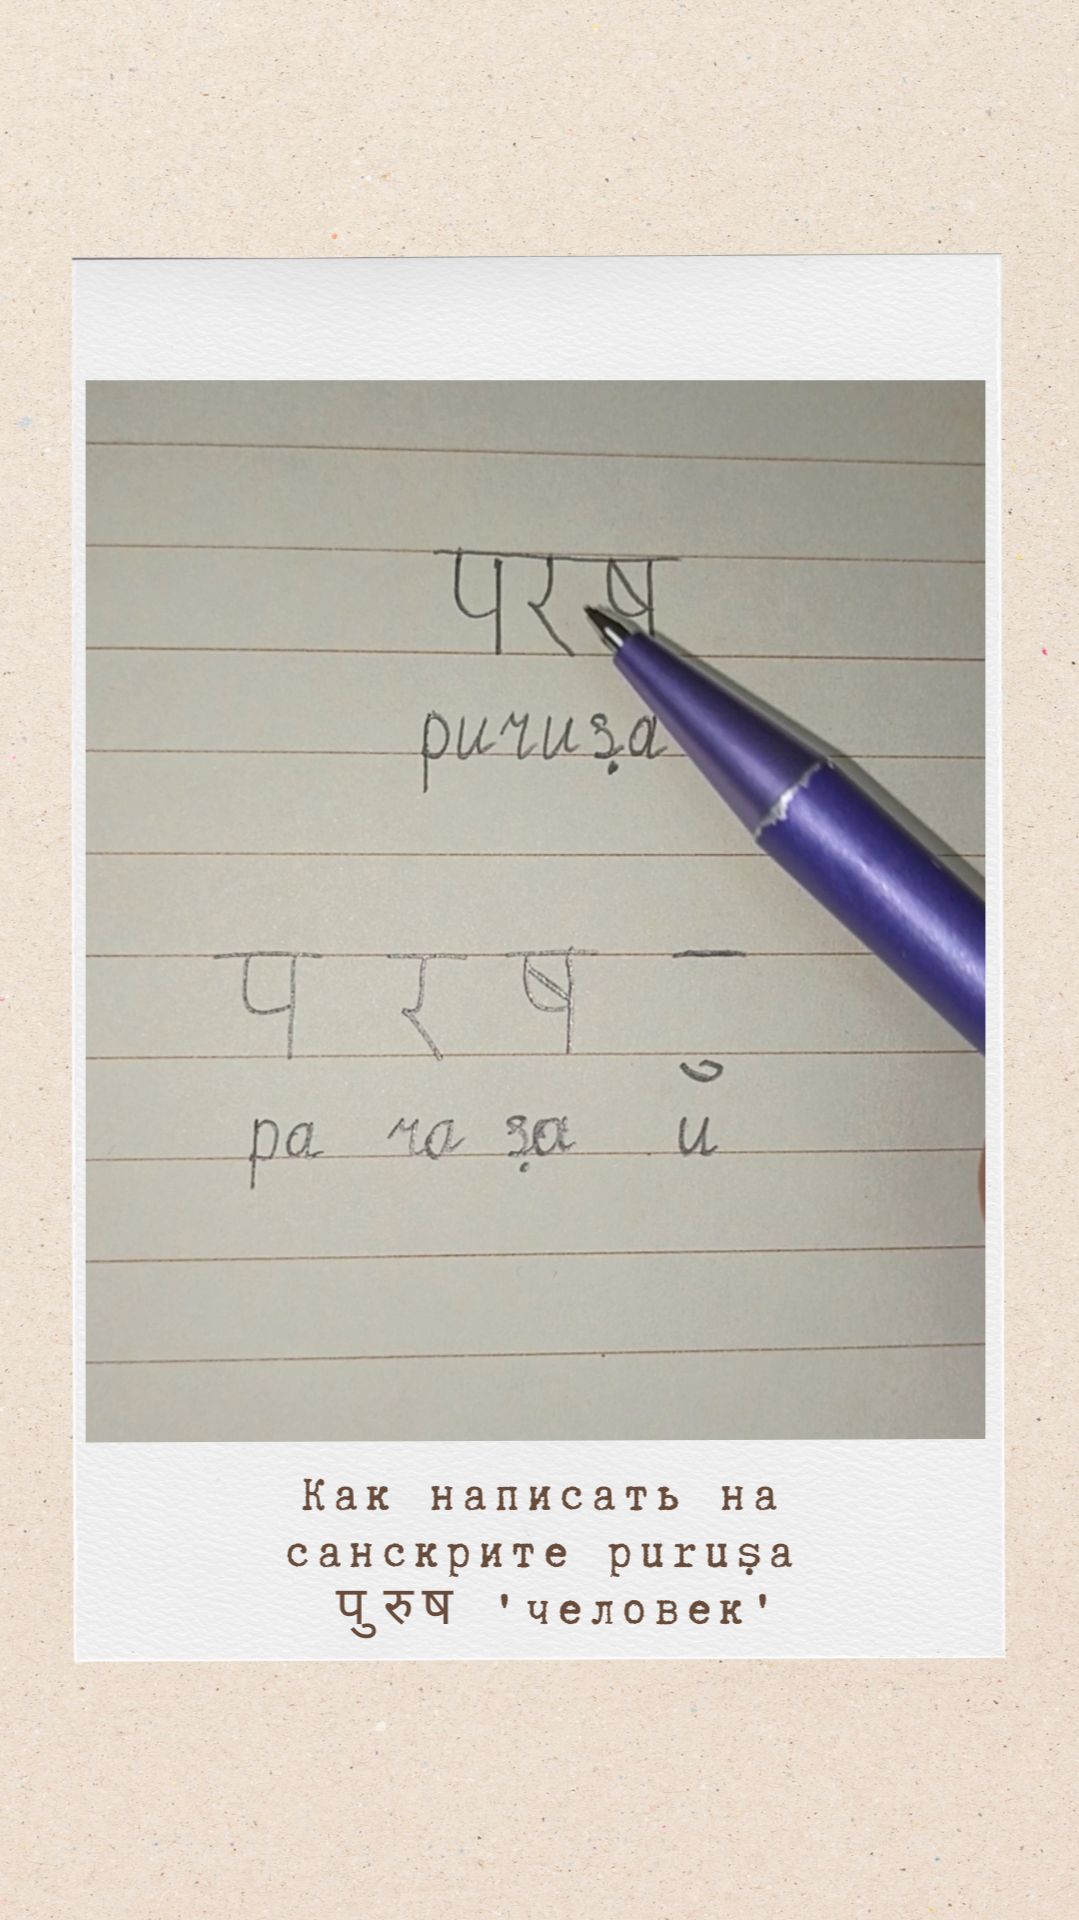 परष
puruṣa
प र ष ु
pa ra ṣa u
Как написать на
санскрите puruṣa
पुरुष 'человек'